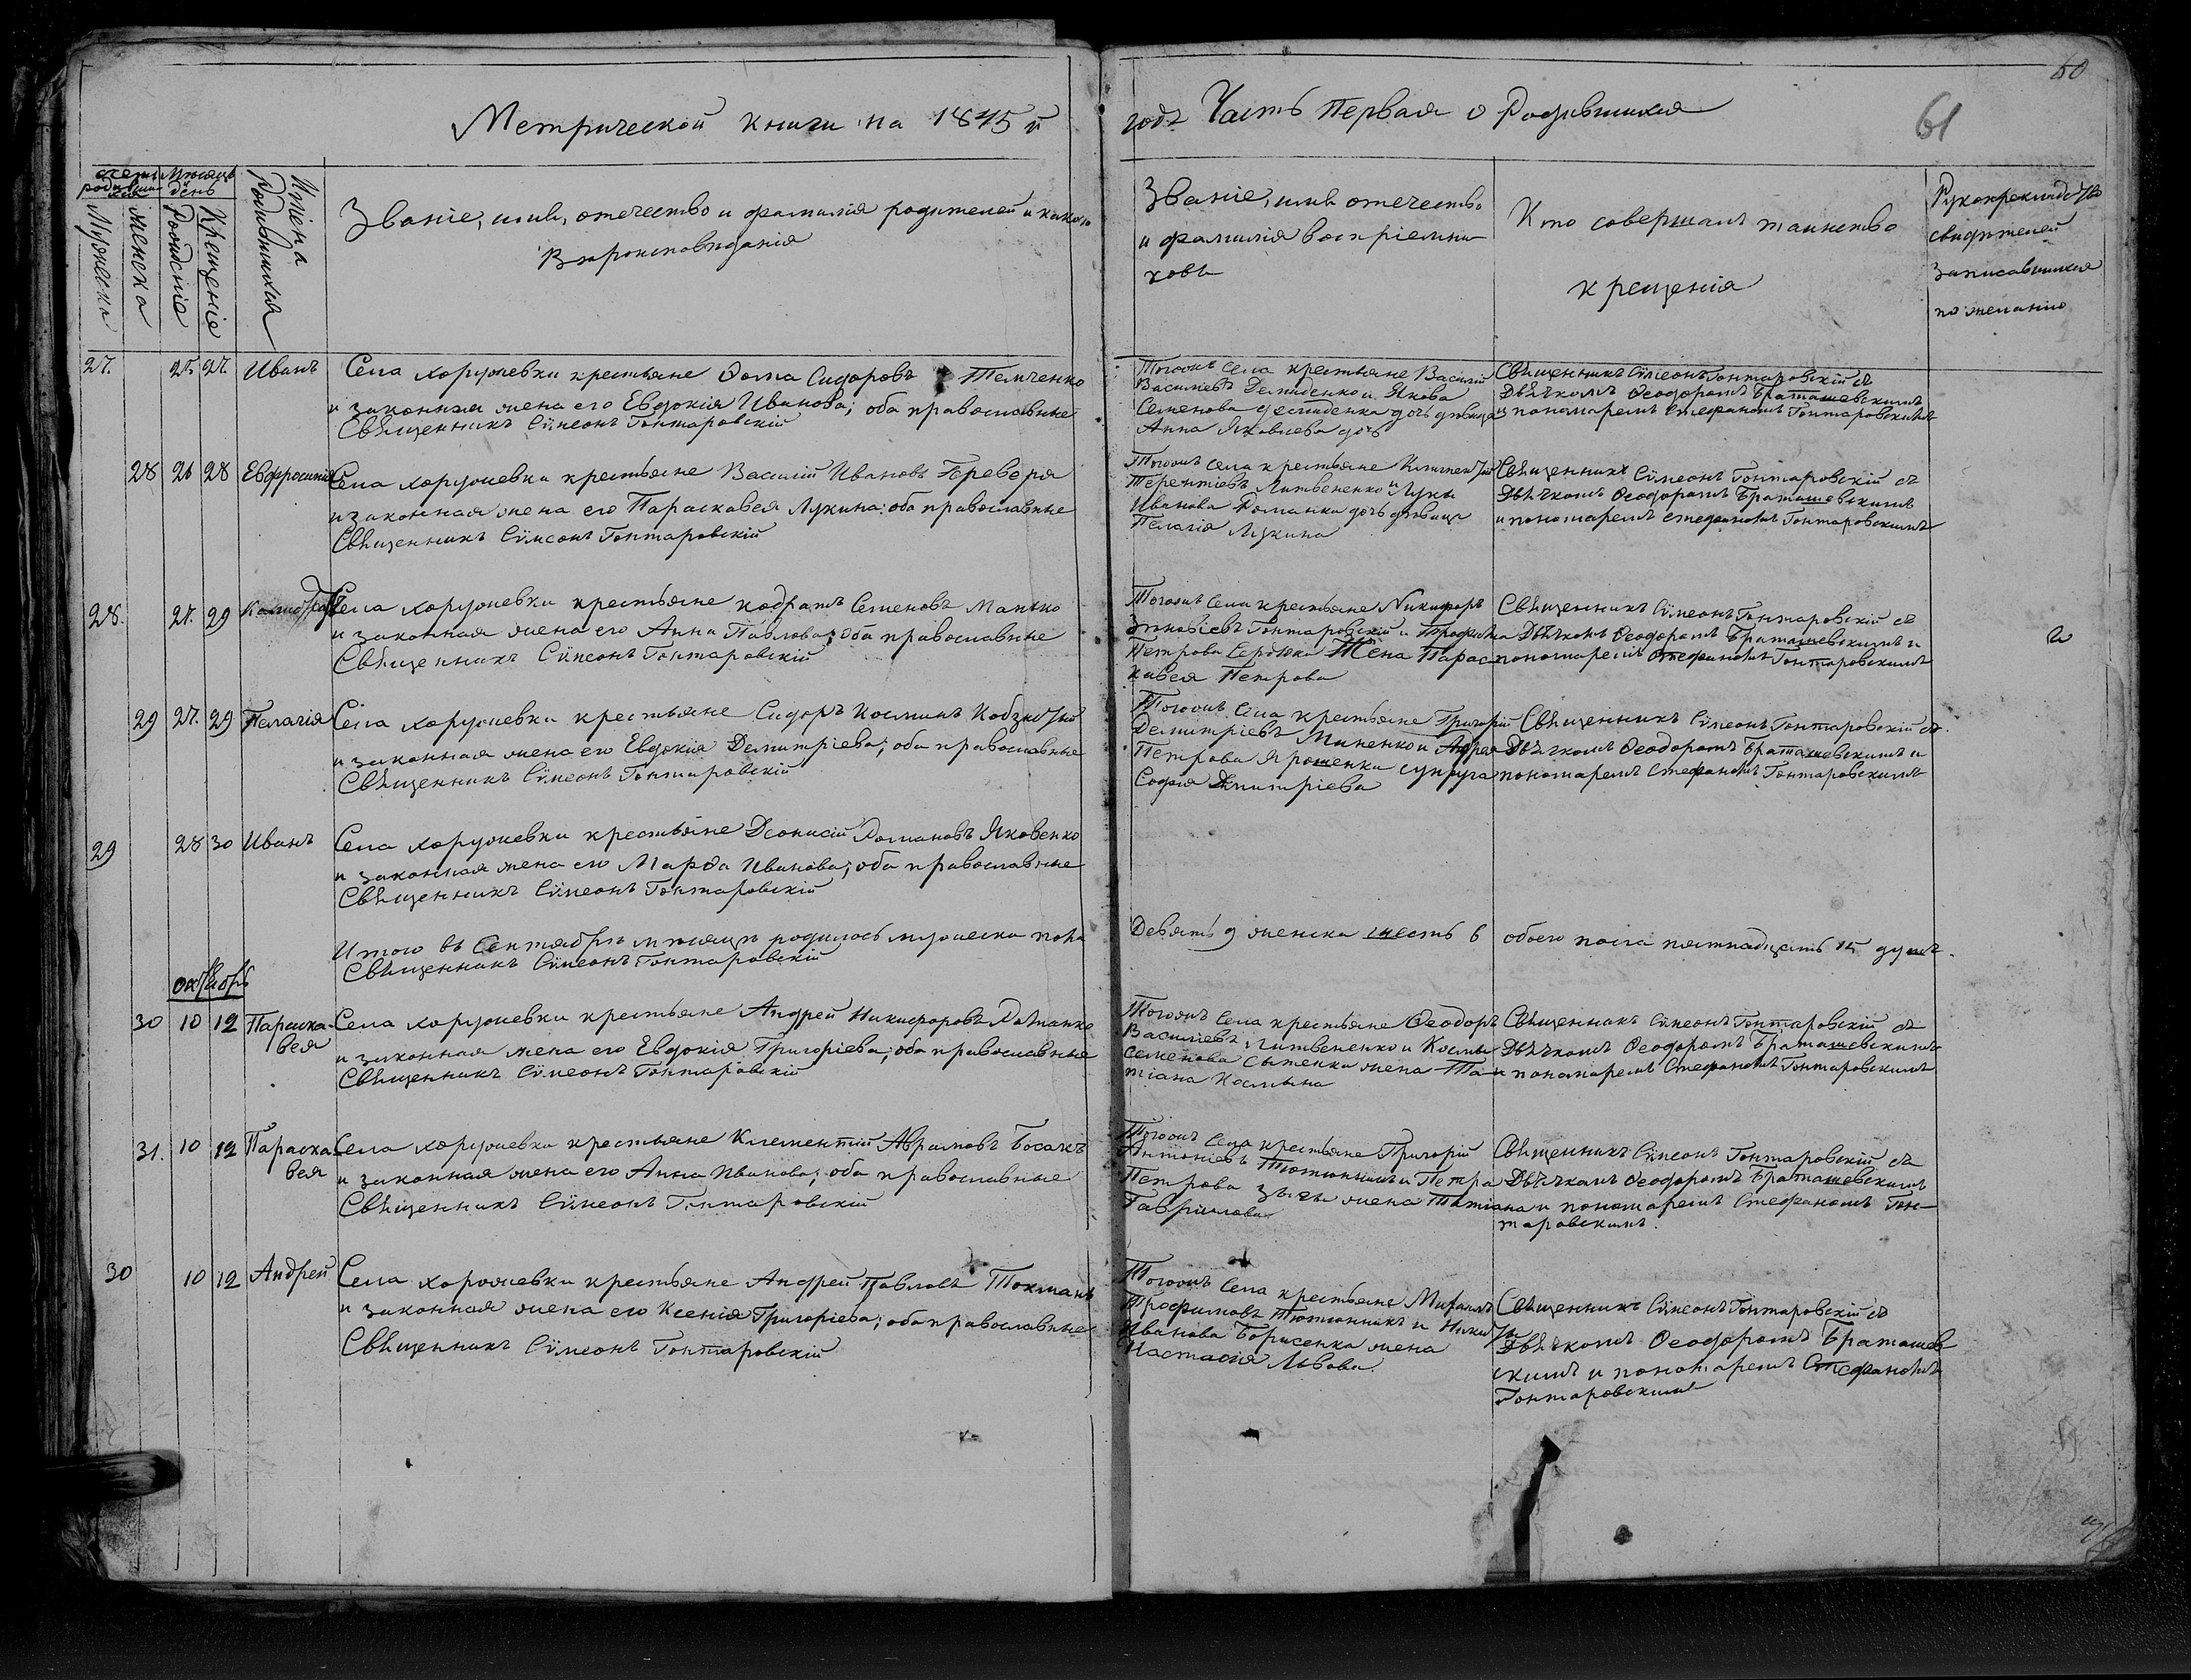 60
61
Метрической книги на 1845 й
годъ Часть Первая о Родившихся
Счетъ родившихся
Мѣсяцъ день
Мужеска
женска
Рожденіе
Крещеніе
Имена Родившихся
Званіе, имя, отечество и фамилія родителей и какого
Вѣроисповѣданія
Званіе, имя отечество
и фамилія воспріемни
ковъ
Кто совершалъ таинство
крещенія
Рукоприкладство
свидѣтелей
записавшихся
по желанію
27. 25 27. Иванъ
Села хоружевки крестьяне Ѳома Сидоровъ Темченко
и законная жена его Евдокія Иванова; оба православные
Священникъ Сѵмеонъ Гонтаровскій
Тогожъ села крестьяне Василій
Васильевъ Демиденко и Якова
Семенова демиденка дочь дѣвица
Анна Яковлева дочь
Священникъ Сѵмеонъ Гонтаровскій съ
Дьячкомъ Ѳеодоромъ Браташевскимъ
и пономаремъ Стефаномъ Гонтаровскимъ
28 26 28 Евфросинія
Села хоружевки крестьяне Василій Ивановъ Перевера
и законная жена его Параскавея Лукина; оба православные
Священникъ Сѵмеонъ Гонтаровскій
Тогожъ села крестьяне Климентій
Терентіевъ Литвененко и Луки
Иванова Романка дочь дѣвица
Пелагія Лукина
Священникъ Сѵмеонъ Гонтаровскій съ
Дьячкомъ Ѳеодоромъ Браташевскимъ
и пономаремъ Стефаномъ Гонтаровскимъ
28. 27. 29
Села хоружевки крестьяне кодратъ Семеновъ Матко
и законная жена его Анна Павлова; оба православные
Священникъ Сѵмеонъ Гонтаровскій
Тогожъ села крестьяне Никифоръ
Зиновіевъ Гонтаровскій и Трофима
Петрова Сердюка Жена Парас
кавея Петрова
Священникъ Сѵмеонъ Гонтаровскій съ
Дьячкомъ Ѳеодоромъ Браташевскимъ и
пономаремъ Стефаномъ Гонтаровскимъ
29 27. 29 Пелагія
Села хоружевки крестьяне Сидоръ Косминъ
и законная жена его Евдокія Демитріева; оба православные
Священникъ Сѵмеонъ Гонтаровскій
Тогожъ села крестьяне Григорій
Демитріевъ Миненко и Андрея
Петрова Ярошенка супруга
Софія Дмитріева
Священникъ Сѵмеонъ Гонтаровскій съ
Дьячкомъ Ѳеодоромъ Браташевскимъ и
пономаремъ Стефаномъ Гонтаровскимъ
29 28 30 Иванъ
Села хоружевки крестьяне Діонисій Романовъ Яковенко
и законная жена его Марѳа Иванова; оба православные
Священникъ Сѵмеонъ Гонтаровскій
Итого въ Сентябрѣ мѣсяцѣ родилось мужеска пола
Девять 9 женска шесть 6 обоего пола пятнадцать 15 душъ.
Священникъ Сѵмеонъ Гонтаровскій
октябрь
30 10 12 Параска-
вея
Села хоружевки крестьяне Андрей Никифоровъ Романко
и законная жена его Евдокія Григоріева; оба православные
Священникъ Сѵмеонъ Гонтаровскій
Тогожъ села крестьяне Ѳеодоръ
Васильевъ Литвененко и Космы
Семенова Сытенка жена Та-
тіана Космына
Священникъ Сѵмеонъ Гонтаровскій съ
Дьячкомъ Ѳеодоромъ Браташевскимъ
и пономаремъ Стефаномъ Гонтаровскимъ
31. 10 12 Параска
вея
Села хоружевки крестьяне Климентій Аврамовъ Босакъ
и законная жена его Анна Иванова; оба православные
Священникъ Сѵмеонъ Гонтаровскій
Тогожъ села крестьяне Григорій
Антоніевъ Тютюнникъ и Петра
Петрова жена Татіана
Гавриилова
Священникъ Сѵмеонъ Гонтаровскій съ
Дьячкомъ Ѳеодоромъ Браташевскимъ
и пономаремъ Стефаномъ Гон-
таровскимъ.
30 10 12 Андрей
Села хоружевки крестьяне Андрей Павловъ Токмань
и законная жена его Ксенія Григоріева; оба православные
Священникъ Сѵмеонъ Гонтаровскій
Тогожъ села крестьяне Михаилъ
Трофимовъ Тютюнникъ и Никиты
Иванова Борисенка жена
Настасія Львова
Священникъ Сѵмеонъ Гонтаровскій съ
Дьячкомъ Ѳеодоромъ Браташев
скимъ и пономаремъ Стефаномъ
Гонтаровскимъ